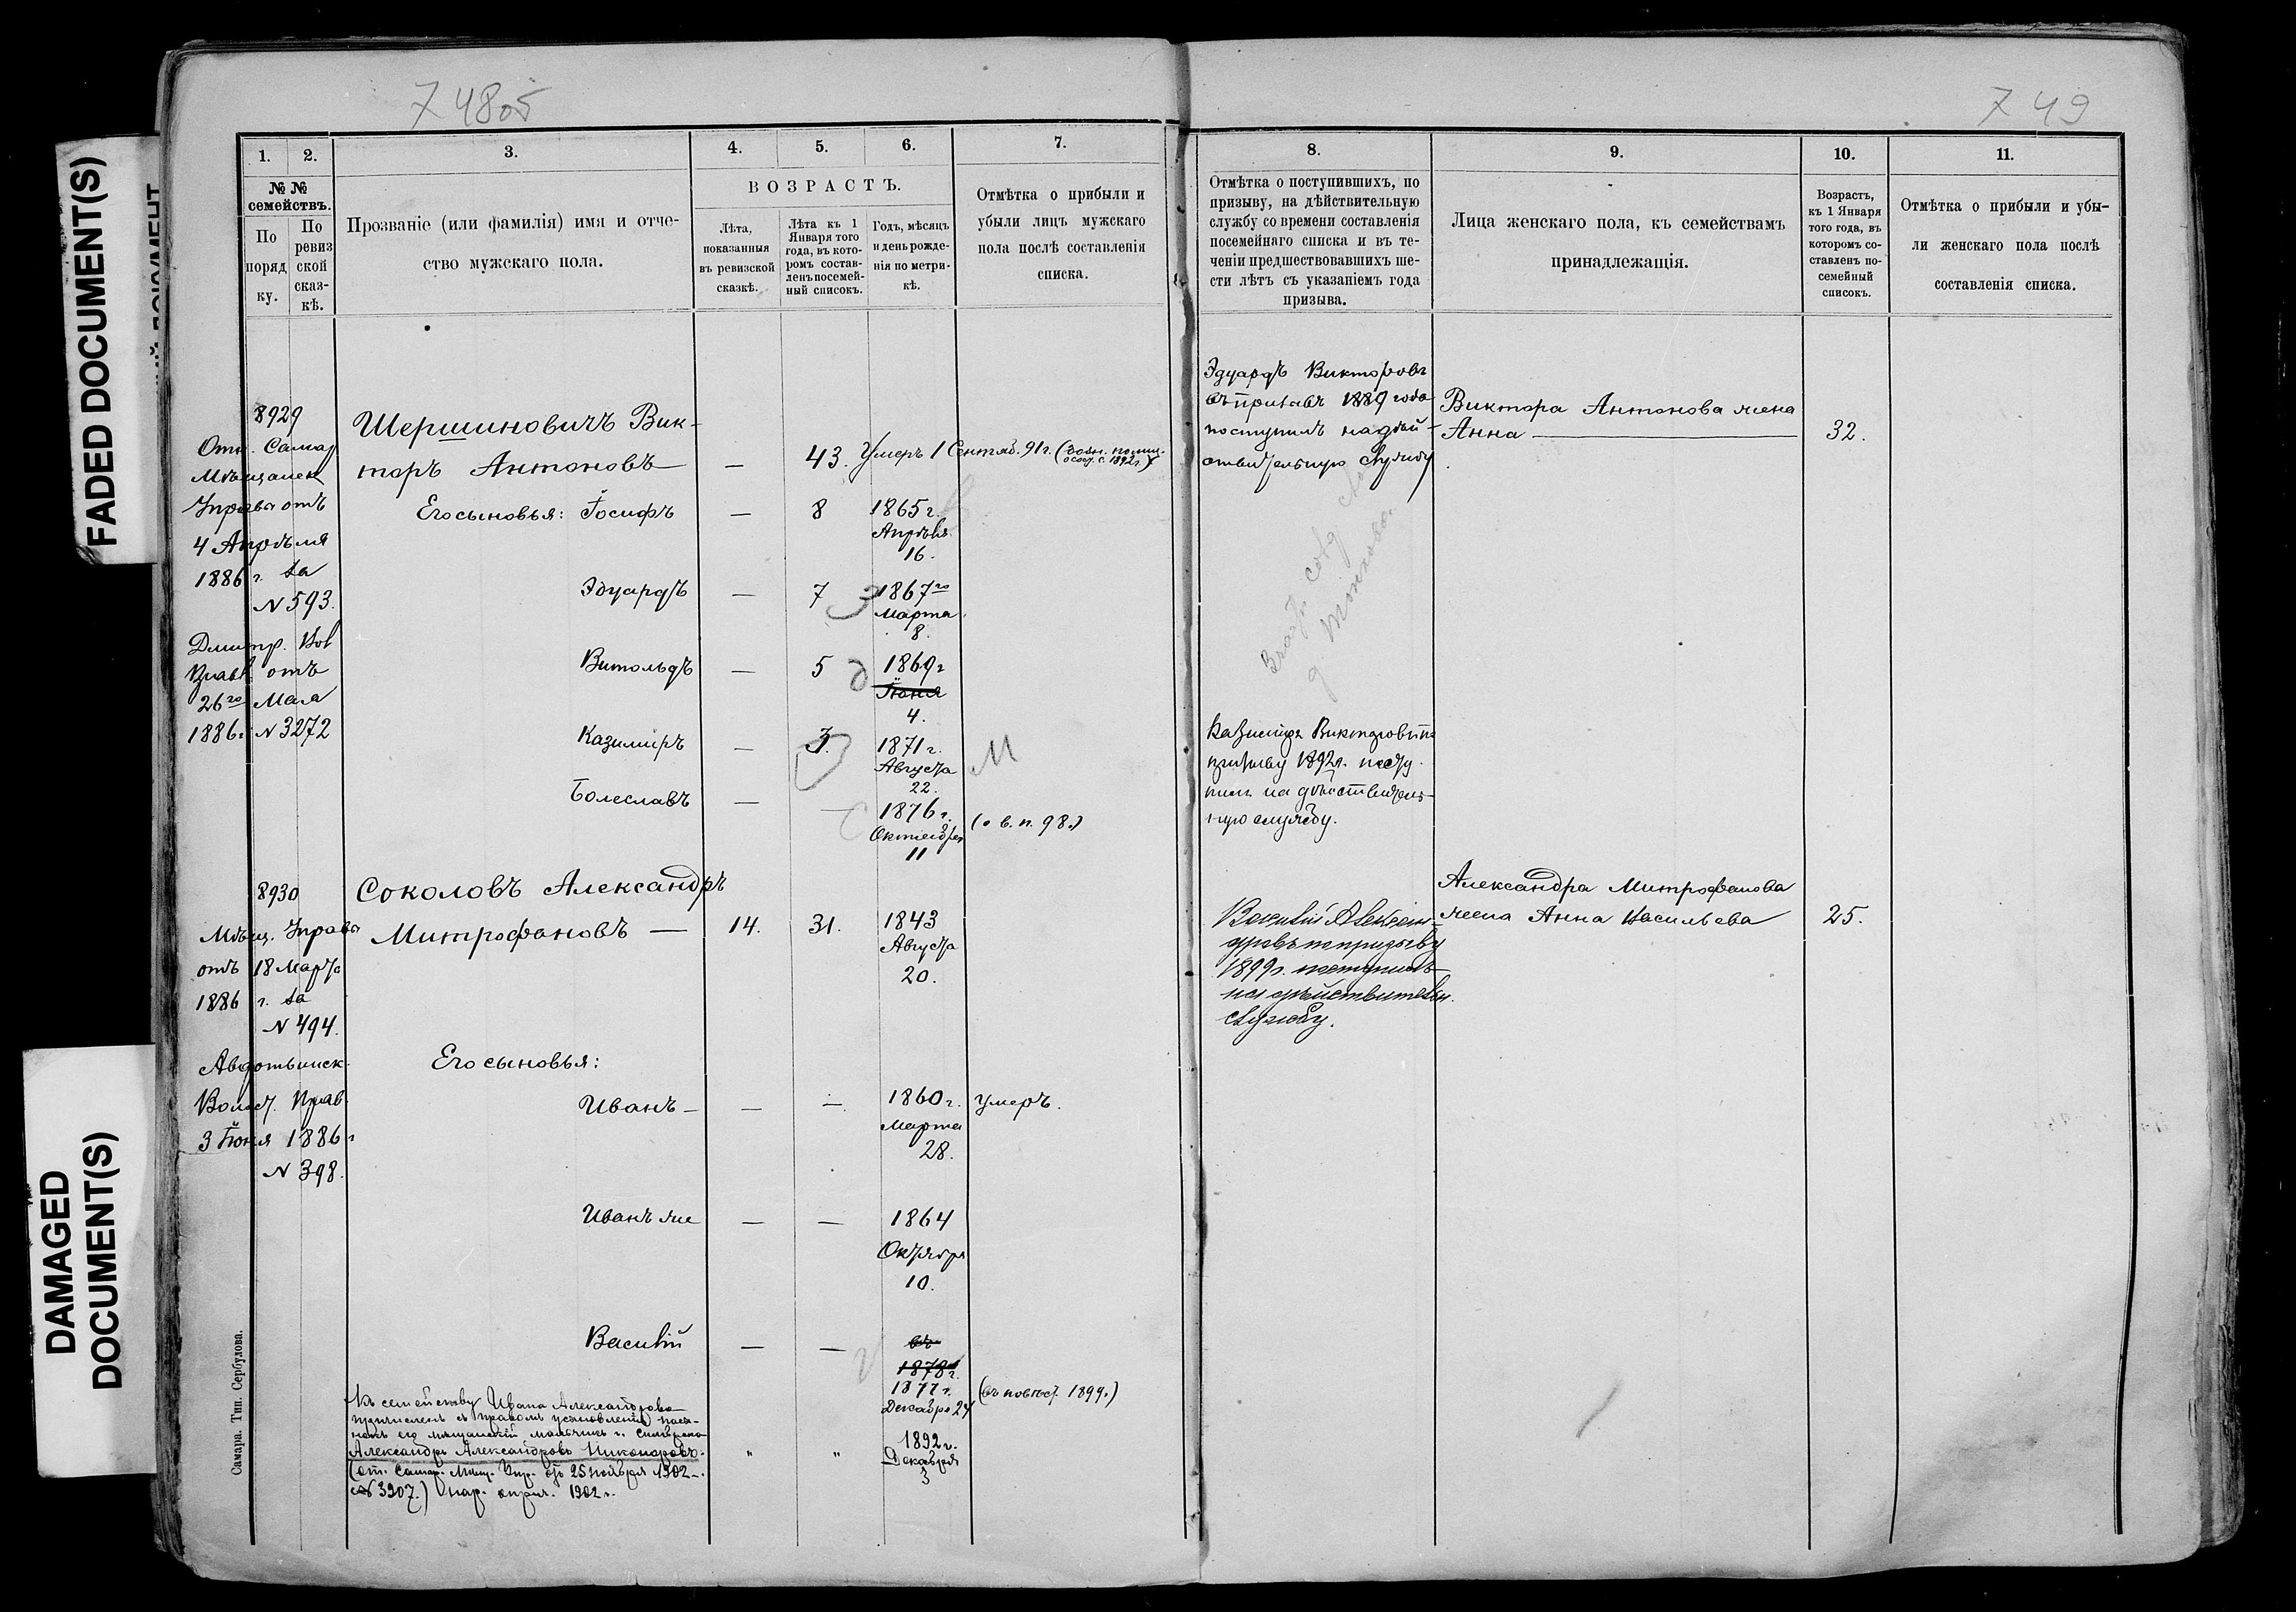 7 48об
7 49
FADED DOCUMENT(S)
DAMAGED
DOCUMENT(S)
1.
2.
3.
4.
5.
6.
7.
№ №
семействъ.
По
поряд
ку.
По
ревиз
ской
сказ-
кѣ.
Прозваніе (или фамилія) имя и отче-
ство мужскаго пола.
ВОЗРАСТЪ.
Лѣта,
показанныя
въ ревизской
сказкѣ.
Лѣта къ 1
Января того
года, въ кото-
ромъ состав-
ленъ посемей-
ный список.
Годъ, мѣсяцъ
и день рожде-
нія по метри-
кѣ.
Отмѣтка о прибыли и
убыли лицъ мужскаго
пола послѣ составленія
списка.
8929
Отн. Самар
Мѣщанск
Управы отъ
4 Апрѣля
1886 г. за
N 593.
отъ
26го Мая
1886 г. N 3272
Шершиновичъ Вик-
торъ Антоновъ — — 43. Умеръ 1 Сентяб. 91 г.
Его сыновья: Іосифъ — 8 1865 г.
Апрѣля
16.
Эдуардъ — 7 1867го
Марта
8.
Витольдъ — 5 1869 г
Іюня
4.
Казимиръ — 3. 1871 г.
Августа
22.
М
Болеславъ — — 1876 г.
Октября
11
98.)
8930
Мѣщ. Управы
отъ 18 Марта
1886 г. за
N 494.
Авдотьинск.
Волост. Прав.
3 Іюня 1886 г
N 398.
Соколовъ Александръ
Митрофановъ — 14. 31. 1843
Августа
20.
Его сыновья:
Иванъ — — — 1860 г. умеръ.
Марта
28.
Иванъ же — — 1864
Октября
10.
Василій — — въ
1878 г.
1877 г.
Декабря 24
1899.)
Къ семейству Ивана Александрова
причисленъ съ правомъ усыновленія
мальчикъ г.
Александръ Александровъ Никоноровъ " " 1892 г.
Декабря
3
(от. Самар. Мѣщ. Упр. отъ 25 ноября 1902
N 3907.) 1902 г.
Самара. Тип. Сербулова.
8.
9.
10.
11.
Отмѣтка о поступившихъ, по
призыву, на дѣйствительную
службу со времени составленія
посемейнаго списка и въ те-
ченіи предшествовавшихъ ше-
сти лѣтъ съ указаніемъ года
призыва.
Лица женскаго пола, къ семействамъ
принадлежащія.
Возрастъ,
къ 1 Января
того года, въ
которомъ со-
ставленъ по-
семейный
списокъ.
Отмѣтка о прибыли и убы-
ли женскаго пола послѣ
составленія списка.
Эдуардъ Викторовъ
въ призывъ 1889 года
поступилъ на дѣй-
ствительную службу
Виктора Антонова жена
Анна — 32.
Казиміръ Викторовъ по
призыву 1892 г. посту
пилъ на дѣйствитель-
ную службу.
Василій Алексан-
дровъ по призыву
1899 г. поступилъ
на дѣйствительн.
службу.
Александра Митрофанова
жена Анна Васильева 25.